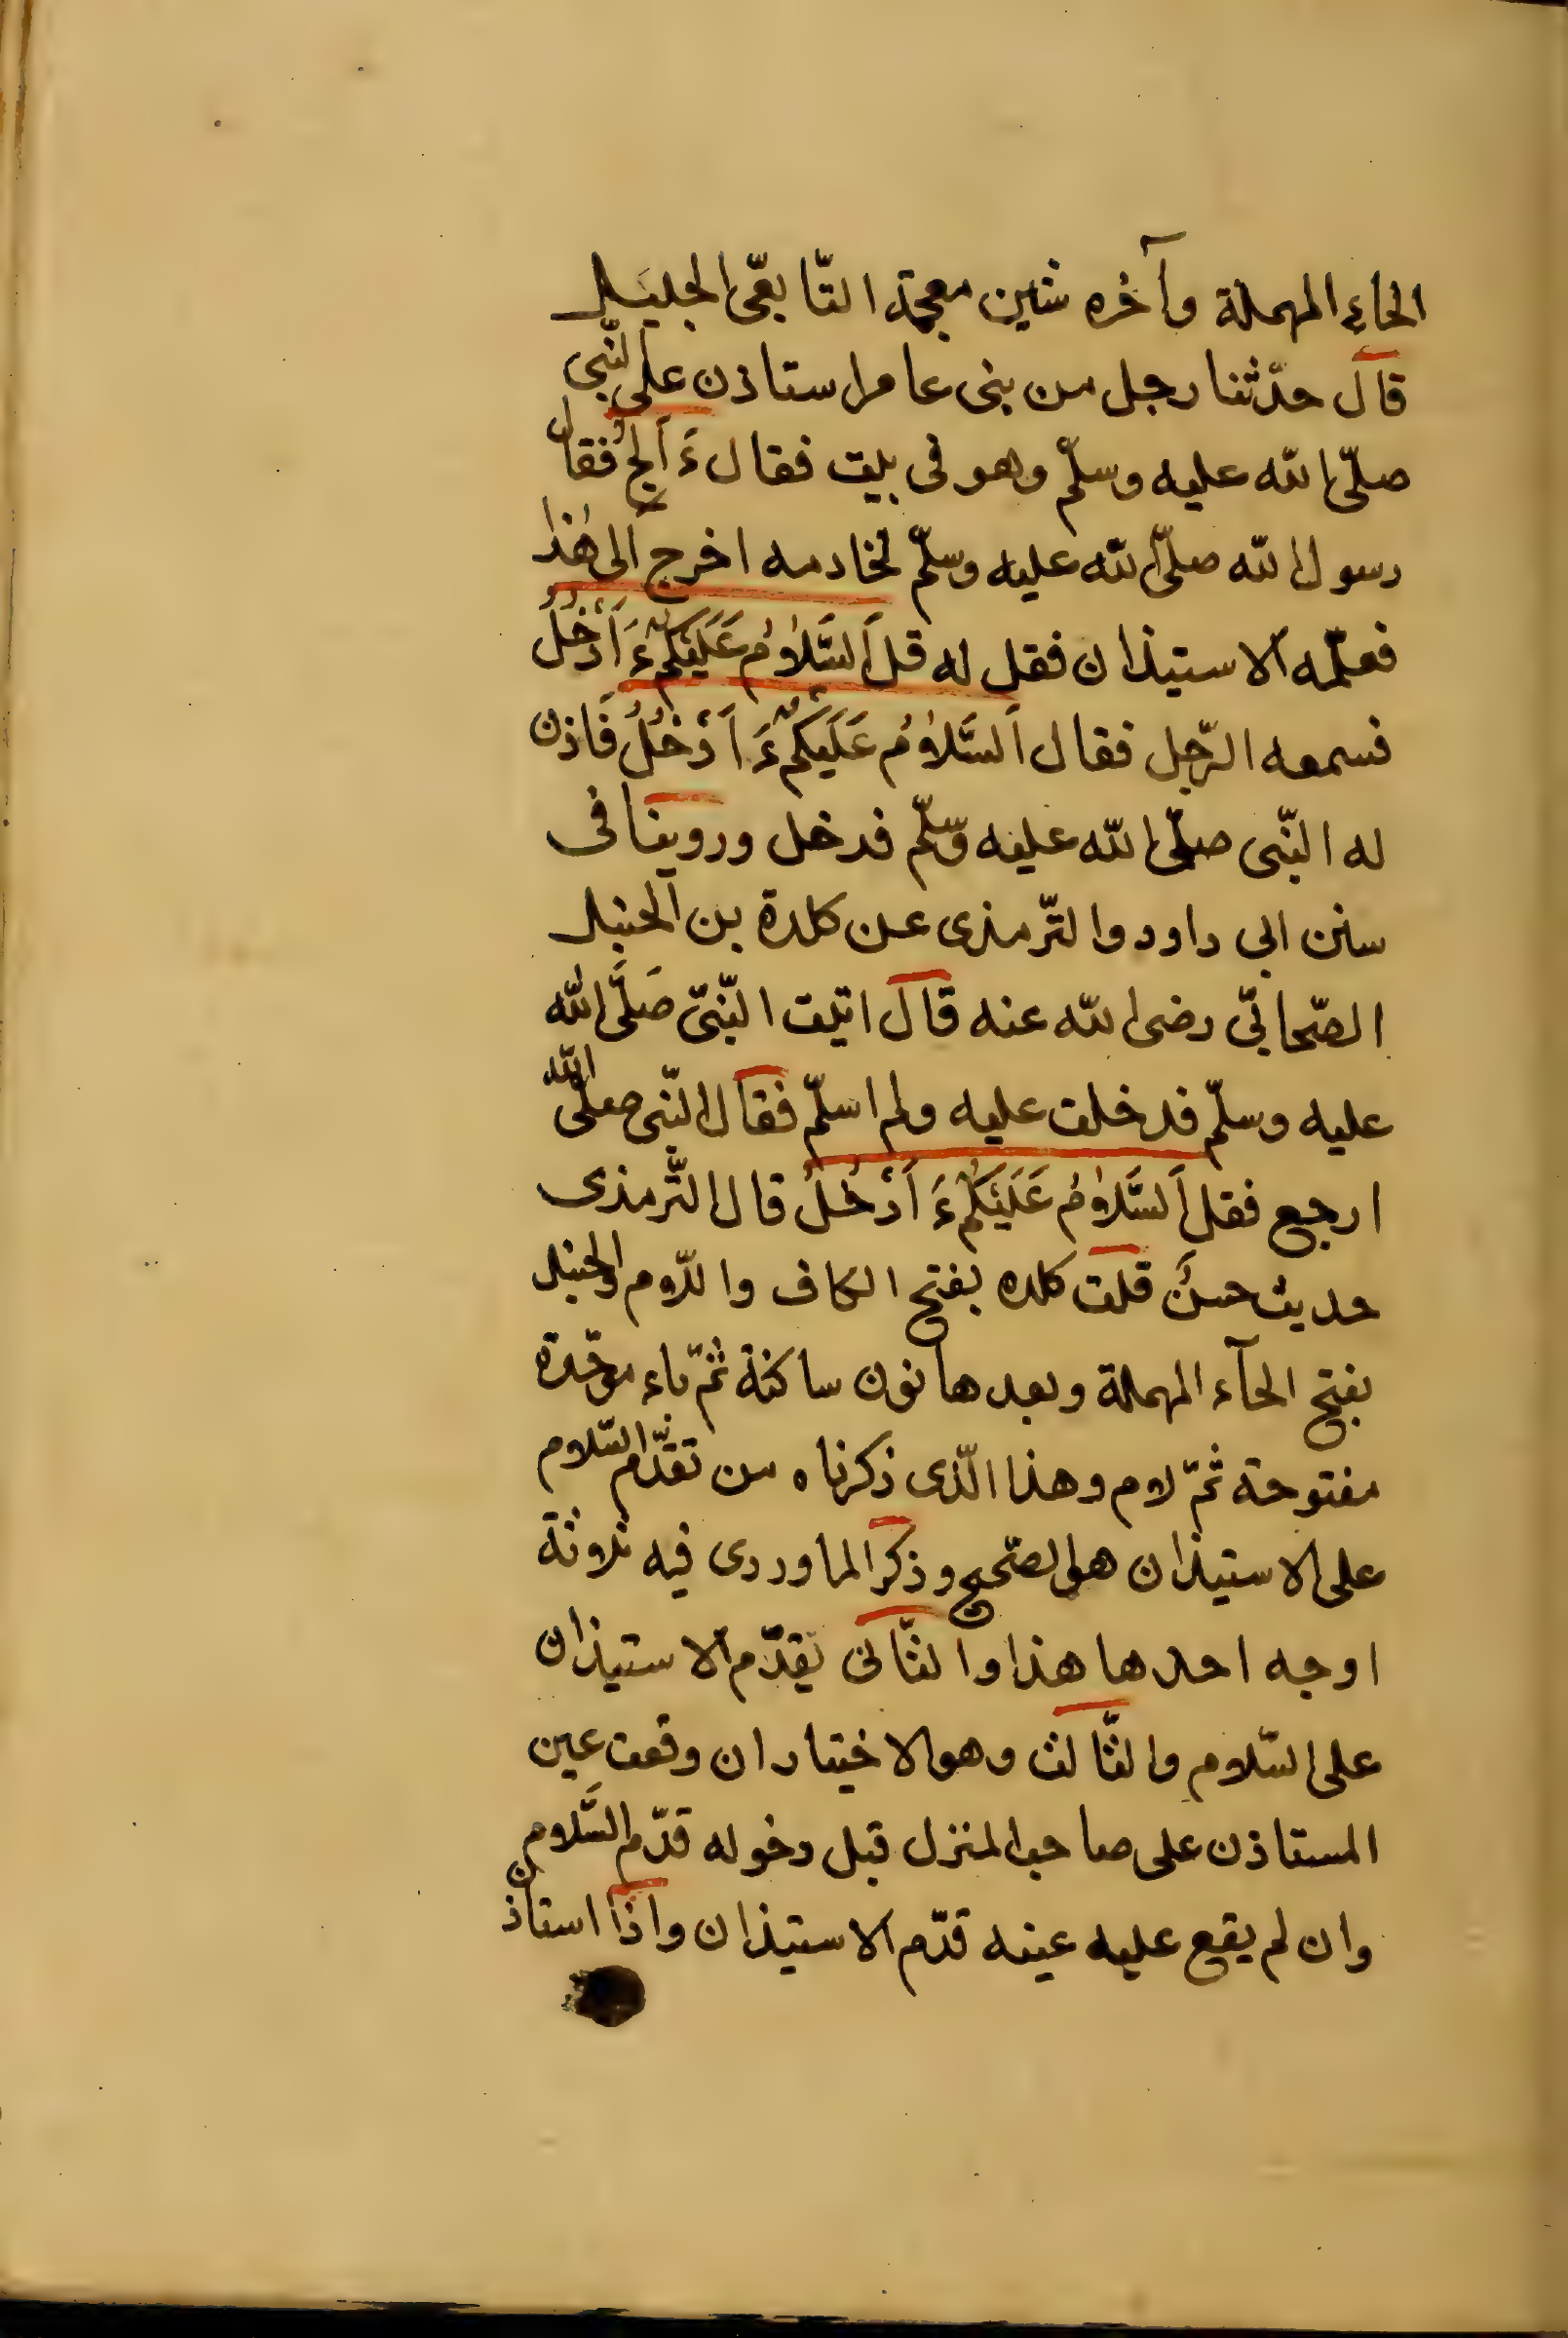 الحاءِ المهملة وآخُره شين معجمة التّابعّى الجليَل
قال حدّثنا رجل من بنى عامر استاذن على النّبى
صلّى الله عليه وسلّم وهو فى بيت فقال ءَاَلِجُ فقال
رسول الله صلّى الله عليه وسلّم لخادمه اخرج الى هٰذا
فعلّمه الاستيذان فقل له قل اَلسَّلٰامُ عَلَيْكُمْ ءَاَدْخُلُ
فسمعه الرّجل فقال اَلسَّلٰامُ عَلَيكُمْ ءَاَدْخُلُ فَاذن
له النّبى صلّى الله عليه وسلّم فدخل وروينا فى
سنن ابى داود والتّرمذى عن كلدة بن الحنبل
الصّحابّى رضى الله عنه قال اتيت النّبىّ صَلَّى الله
عليه وسلّم فدخلت عليه ولم اسلّم فقال النّبى صلّى الله
ارجع فقل اَلسَّلٰامُ عَلَيْكُمْ ءَاَدْخُلُ قال التّرمذى
حديث حسنٌ قلت كلده بفتح الكاف واللّام والحنبل
بفتح الحآء المهملة وبعدها نون ساكنة ثمّ باء موحّدة
مفتوحة ثمّ لام وهذا الّذى ذكرناه من تقدّم السّلام
على الاستيذان هو الصّحيح وذكر الماوردى فيه ثلاثة
اوجه احدها هذا والثّانى تقدّم الاستيذان
على السّلام والثّالث وهو الاختيار ان وقعت عين
المستاذن على صاحب المنزل قبل دخوله قدّم السَّلام
وان لم يقع عليه عينه قدّم الاستيذان واذا استاذن